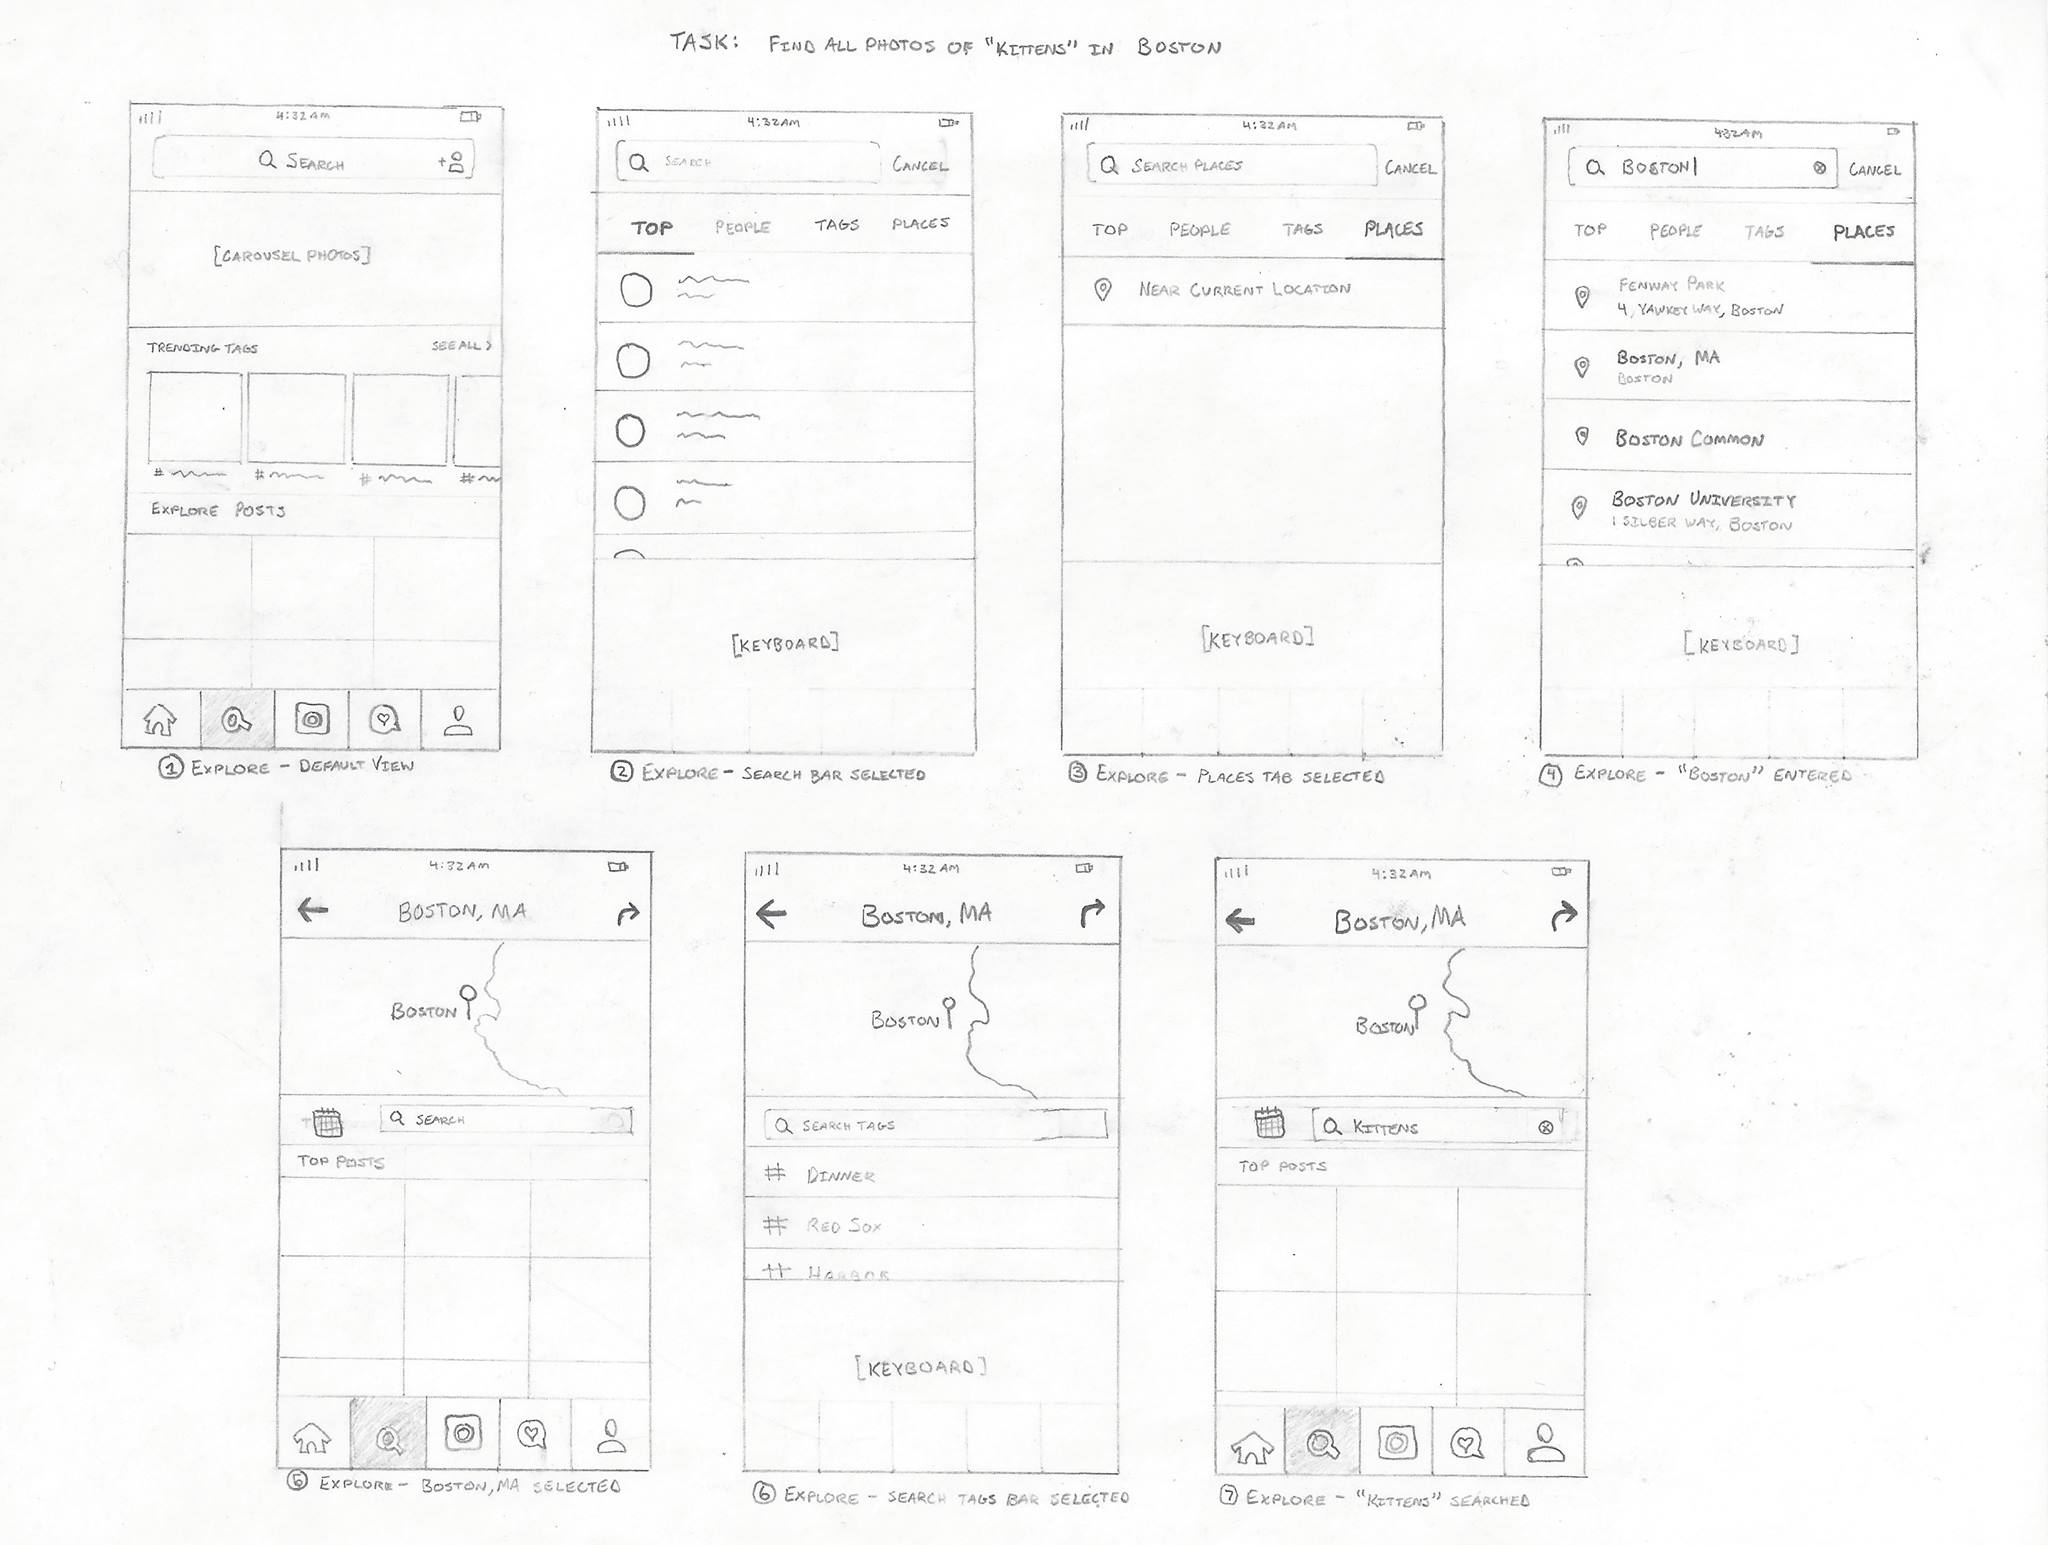 TASK: FIND ALL PHOTOS OF "KITTENS" IN BOSTON
4:32AM
SEARCH
[CAROUSEL PHOTOS]
TRENDING TAGS SEE ALL >
# # # #
EXPLORE POSTS
① EXPLORE - DEFAULT VIEW
4:32AM
SEARCH CANCEL
TOP PEOPLE TAGS PLACES
[KEYBOARD]
② EXPLORE - SEARCH BAR SELECTED
4:32AM
SEARCH PLACES CANCEL
TOP PEOPLE TAGS PLACES
NEAR CURRENT LOCATION
[KEYBOARD]
③ EXPLORE - PLACES TAB SELECTED
4:32AM
BOSTON| CANCEL
TOP PEOPLE TAGS PLACES
FENWAY PARK
4, YAWKEY WAY, BOSTON
BOSTON, MA
BOSTON
BOSTON COMMON
BOSTON UNIVERSITY
1 SILBER WAY, BOSTON
[KEYBOARD]
④ EXPLORE - "BOSTON" ENTERED
4:32AM
BOSTON, MA
BOSTON
SEARCH
TOP POSTS
⑤ EXPLORE - BOSTON, MA SELECTED
4:32AM
BOSTON, MA
BOSTON
SEARCH TAGS
# DINNER
# RED SOX
# HARBOR
[KEYBOARD]
⑥ EXPLORE - SEARCH TAGS BAR SELECTED
4:32AM
BOSTON, MA
BOSTON
KITTENS
TOP POSTS
⑦ EXPLORE - "KITTENS" SEARCHED